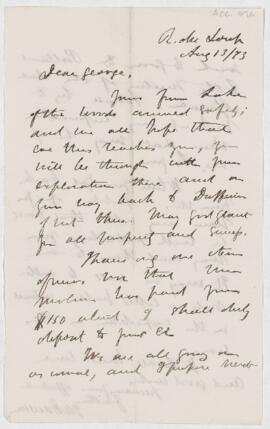 Aug 13/83
Dear George,
Yours from Lake
of the Woods arrived safely;
and we all hope that
ere this reaches you, you
will be through with your
exploration there and on
your way back to Dufferin
if not there. May God grant
you all prosperity and
There is one item
of news, viz that Mr.
has paid you
$150 which I shall duly
deposit to your
We are all going on
as usual, and I